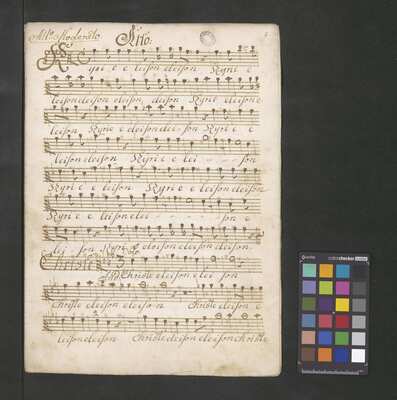 All.o Moderato Alto.
Kyri e e leison eleison Kyrie e
leison eleison eleison eleison Kyrie eleison e
leison Kyrie e eleison elei - son Kyri e e
leison eleison Kyri e e lei - - - son
Kyri e e leison Kyri e e leison eleison
Kyri e e leison elei - - - - - son e
lei - son Kyri e eleison eleison eleison.
Christe Solo
Christe eleison elei son
Christe eleison eleiso n Christe eleison e
leison eleison Christe eleison eleison Christe
colorchecker